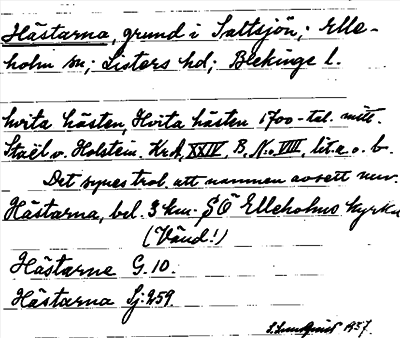 Hästarna, grund i Saltsjön; Elle-
holm sn; Listers hd; Blekinge l.
hvita hästen, Hvita hästen 1700-tal. mitt.
Staël v. Holstein. KrA, XXIV, B, No VIII, lit. a. o. b.
Det synes trol. att namnen avsett nuv.
Hästarna, bel. 3 km. SÖ Elleholms kyrka
(Vänd!)
Hästarne G. 10.
Hästarna Sj: 259.
S. Lundqvist 1937.